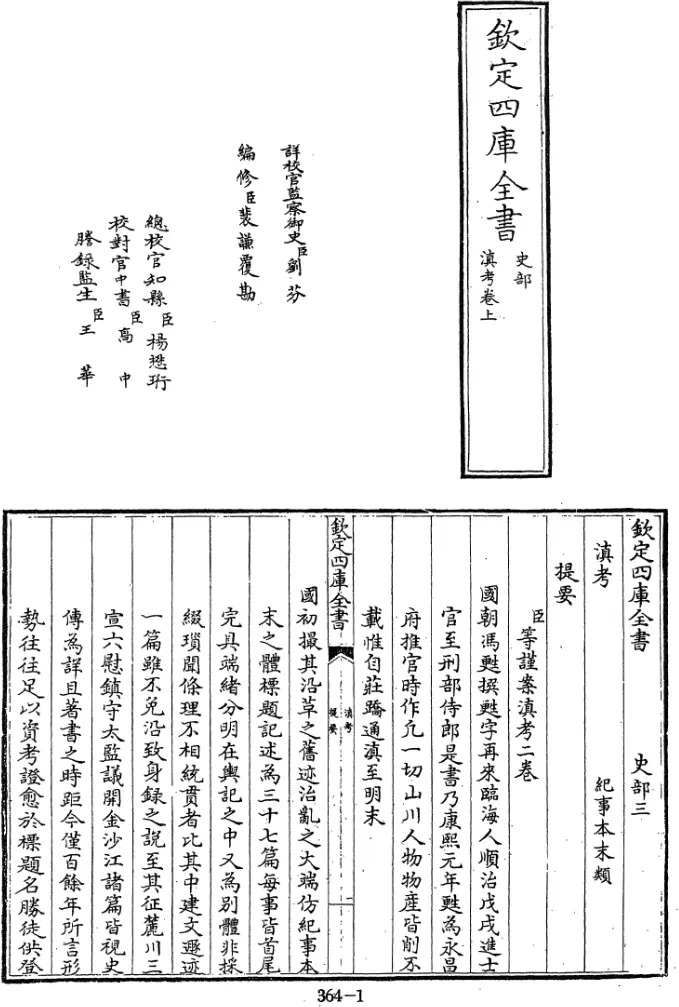 欽定四庫全書
史部
滇考卷上
詳校官監察御史臣劉芬
編修臣裴謙覆勘
總校官知縣臣楊懋珩
校對官中書臣高中
謄錄監生臣王華
欽定四庫全書
史部三
滇考
紀事本末類
提要
臣等謹案滇考二卷
國朝馮甦撰甦字再來臨海人順治戊戌進士
官至刑部侍郎是書乃康熙元年甦為永昌
府推官時作凡一切山川人物物產皆削不
載惟自莊蹻通滇至明末
欽定四庫全書
滇考
提要
一
國初撮其沿革之舊迹治亂之大端仿紀事本
末之體標題記述為三十七篇每事皆首尾
完具端緒分明在輿記之中又為別體非採
綴瑣聞條理不相統貫者比其中建文遯迹
一篇雖不免沿致身錄之説至其征麓川三
宣六慰鎮守太監議開金沙江諸篇皆視史
傳為詳且著書之時距今僅百餘年所言形
勢往往足以資考證愈於標題名勝徒供登
364-1